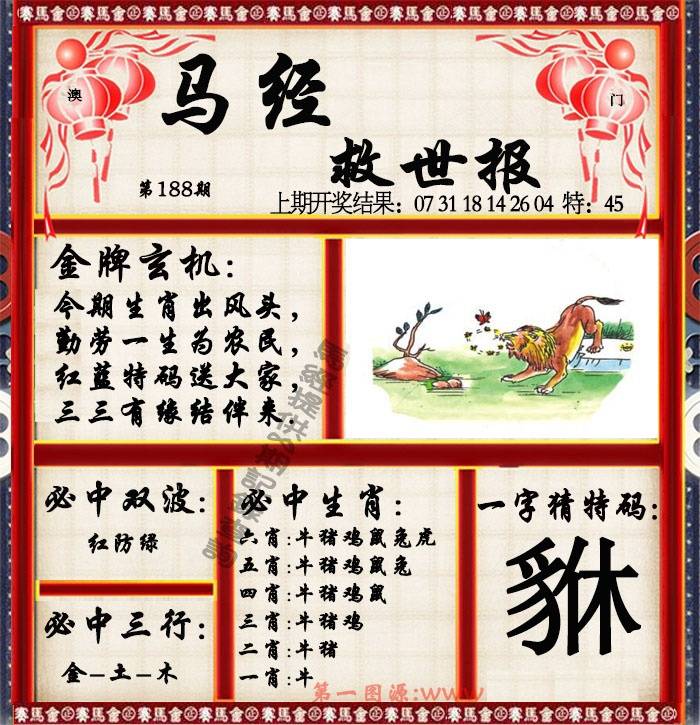 賽馬會 賽馬會 賽馬會 賽馬會 賽馬會 賽馬會 賽馬會 賽馬會 賽馬會
澳
门
马经
救世报
第188期
上期开奖结果：07 31 18 14 26 04 特：45
金牌玄机：
今期生肖出风头，
勤劳一生为农民，
红蓝特码送大家，
三三有缘结伴来.
必中双波：
红防绿
必中三行：
金-土-木
必中生肖：
六肖:牛猪鸡鼠兔虎
五肖:牛猪鸡鼠兔
四肖:牛猪鸡鼠
三肖:牛猪鸡
二肖:牛猪
一肖:牛
一字猜特码：
貅
第一图源:www